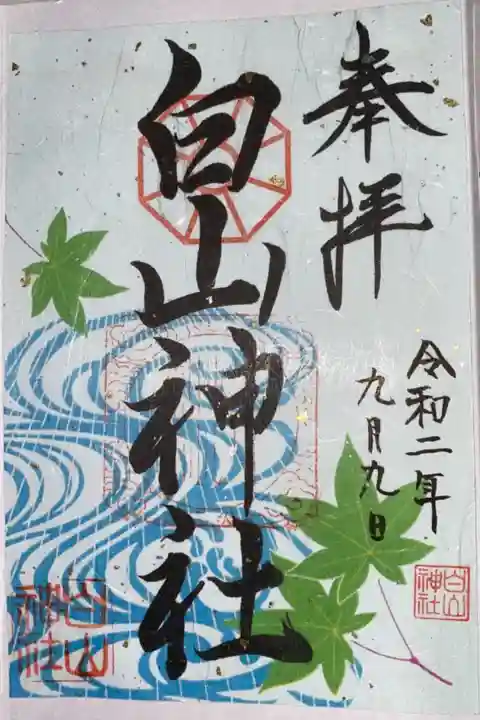 奉拝
令和二年
九月九日
白山神社
白山
神社
白山
神社